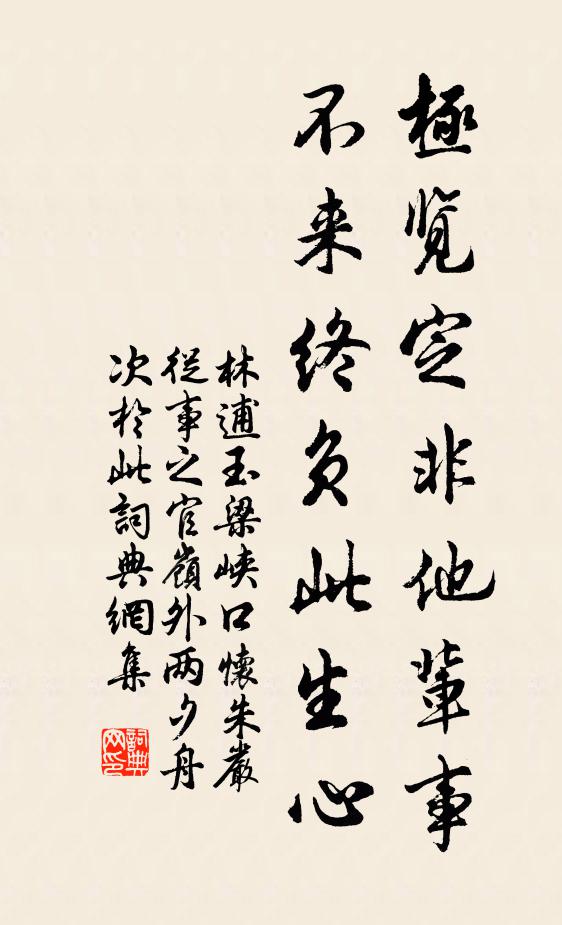 極覧定非他輩事
不来終負此生心
林逋玉梁峽口懷朱嚴
從事之官嶺外两夕舟
次於此詞典網集
詞典
网印